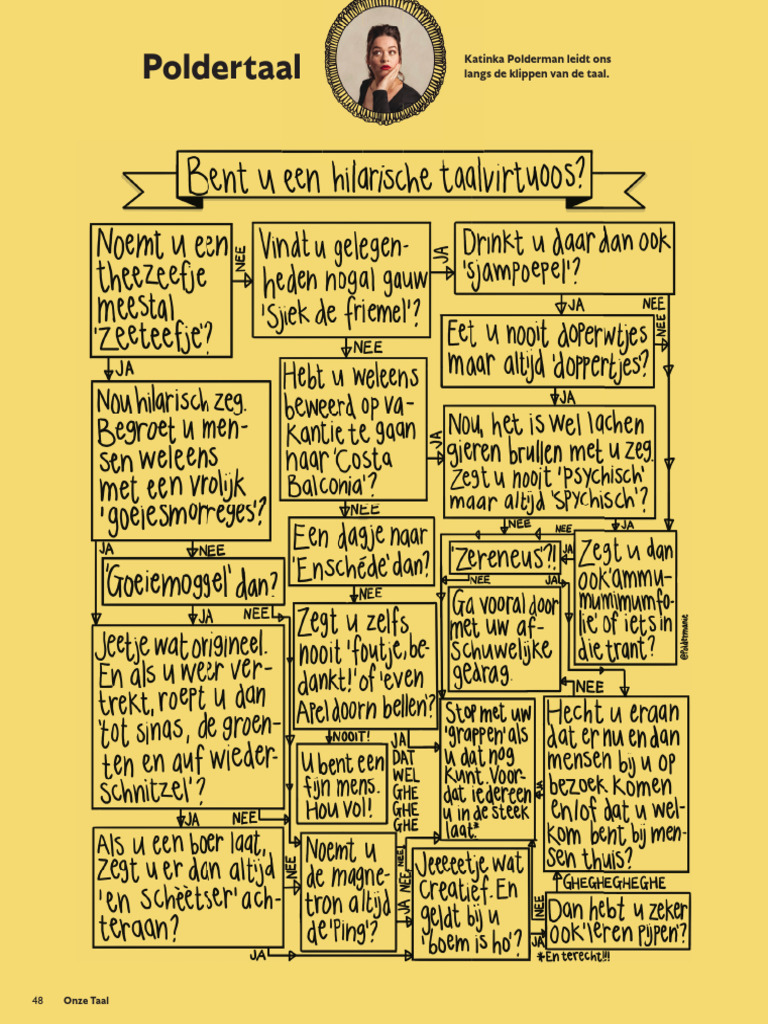 Poldertaal
Katinka Polderman leidt ons
langs de klippen van de taal.
Bent u een hilarische taalvirtuoos?
Noemt u een
theezeefje
meestal
'zeeteefje'?
NEE
JA
Vindt u gelegen-
heden nogal gauw
'sjiek de friemel'?
JA
NEE
Drinkt u daar dan ook
'sjampoepel'?
JA
NEE
Eet u nooit doperwtjes
maar altijd 'doppertjes'?
NEE
JA
Nou hilarisch zeg.
Begroet u men-
sen weleens
met een vrolijk
'goeiesmorreges'?
JA
NEE
Hebt u weleens
beweerd op va-
kantie te gaan
naar 'Costa
Balconia'?
JA
NEE
Nou, het is wel lachen
gieren brullen met u zeg.
Zegt u nooit 'psychisch'
maar altijd 'spychisch'?
NEE
JA
'Goeiemoggel' dan?
JA
NEE
Een dagje naar
'Enschéde' dan?
NEE
'Zereneus'?!
NEE
JA
NEE
JA
Zegt u dan
ook 'ammu-
mumimumfo-
lie' of iets in
die trant?
@poldermanie
Jeetje wat origineel.
En als u weer ver-
trekt, roept u dan
'tot sinas, de groen-
ten en auf wieder-
schnitzel'?
JA
NEE
Zegt u zelfs
nooit 'foutje, be-
dankt!' of 'even
Apeldoorn bellen?
NOOIT!
JA
DAT
WEL
GHE
GHE
GHE
Ga vooral door
met uw af-
schuwelijke
gedrag.
NEE
U bent een
fijn mens.
Hou vol!
Stop met uw
'grappen' als
u dat nog
kunt. Voor-
dat iedereen
u in de steek
laat.*
JA
Hecht u eraan
dat er nu en dan
mensen bij u op
bezoek komen
en/of dat u wel-
kom bent bij men-
sen thuis?
GHEGHEGHEGHE
Als u een boer laat,
zegt u er dan altijd
'en schèètser' ach-
teraan?
NEE
JA
Noemt u
de magne-
tron altijd
de 'ping'?
NEE
JA
NEE
Jeeeeetje wat
creatief. En
geldt bij u
'boem is ho'?
NEE
JA
Dan hebt u zeker
ook 'leren pijpen'?
*En terecht!!!
48
Onze Taal